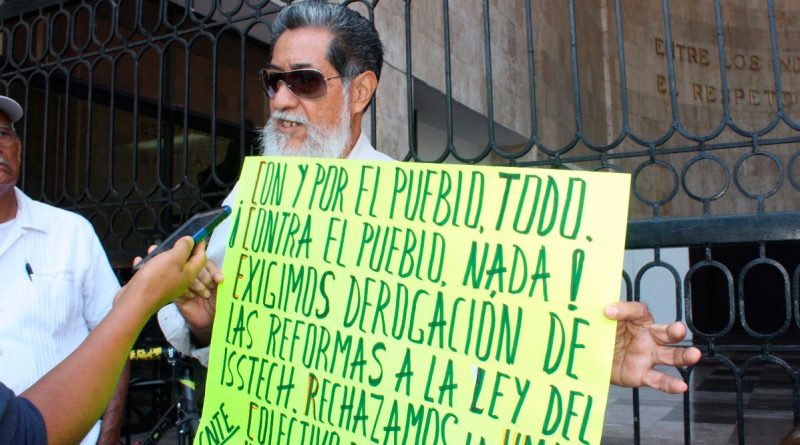 ENTRE LOS
EL RESPETO
CON Y POR EL PUEBLO, TODO.
¡CONTRA EL PUEBLO, NADA!
EXIGIMOS DEROGACIÓN DE
LAS REFORMAS A LA LEY DEL
ISSTECH RECHAZAMOS LA
COLECTIVO